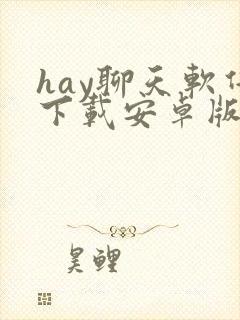 hay聊天軟件
下載安卓版
昊鲤